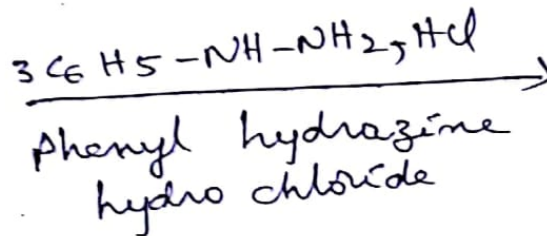 3C6H5-NH-NH2,HCl
Phenyl hydrazine
hydro chloride